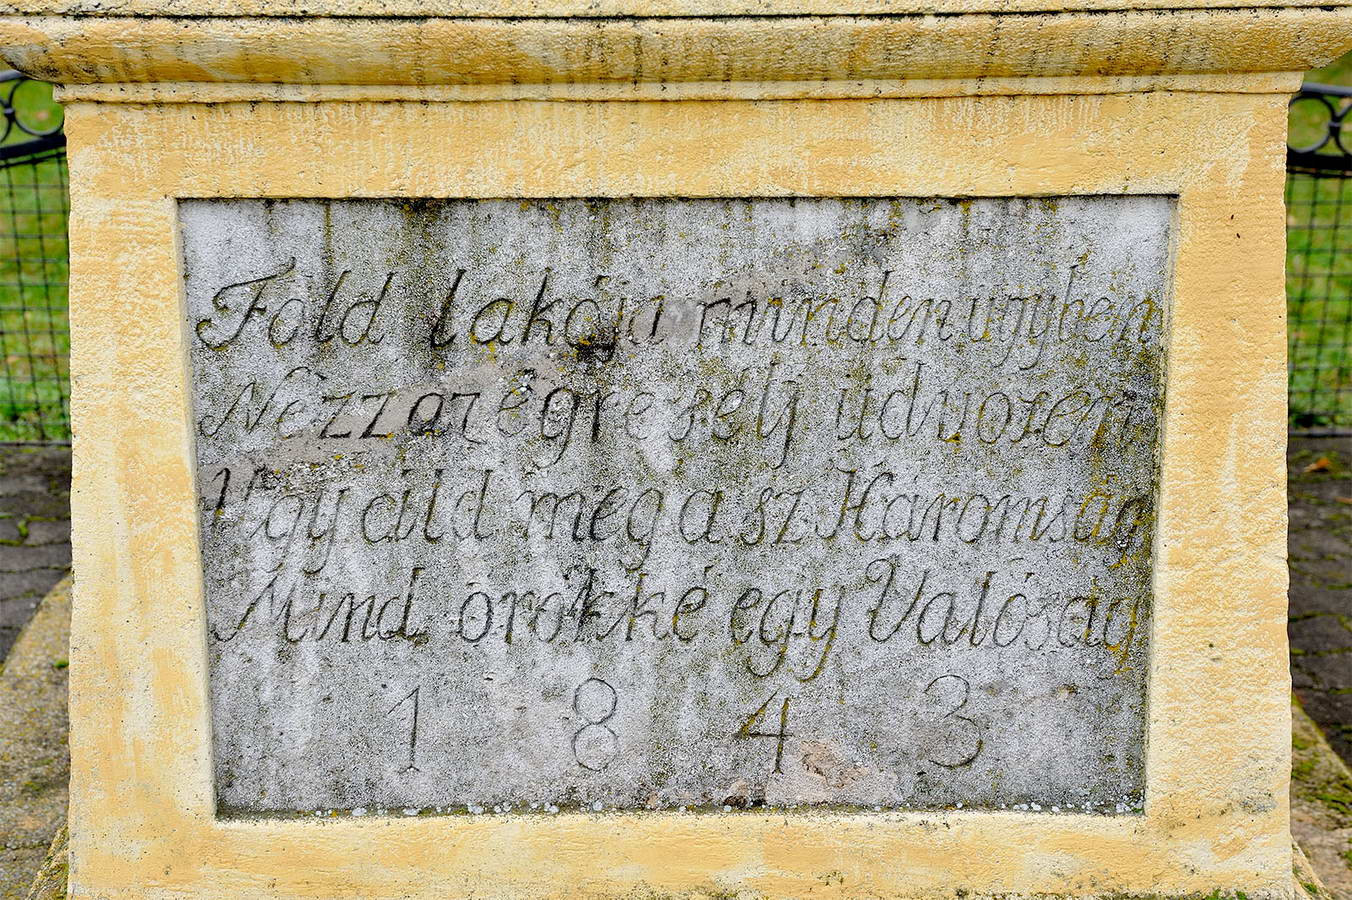 Föld lakója minden ugyben
Nézz az égre s élj üdvözen
Ugy áld meg a sz Háromság
Mind örökké egy Valóság
1843